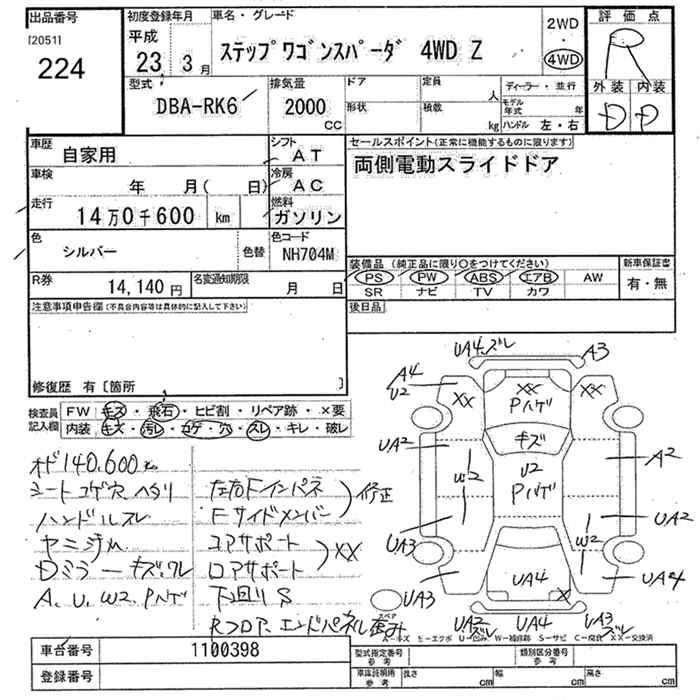 出品番号
[2051]
224
初度登録年月
平成
23 3月
車名・グレード
ステップワゴンスパーダ 4WD Z
2WD
4WD
評価点
R
外装 内装
D D
型式
DBA-RK6
排気量
2000
CC
ドア
形状
定員
人
積載
kg
ディーラー・並行
モデル年式 年
ハンドル 左・右
車歴
自家用
シフト
AT
車検
年 月( 日)
冷房
AC
走行
14万0千600 km
燃料
ガソリン
色
シルバー
色替
色コード
NH704M
R券
14,140円
名変通知期限
月 日
セールスポイント(正常に機能するものに限ります)
両側電動スライドドア
装備品 (純正品に限り○をつけてください)
PS PW ABS エアB AW
SR ナビ TV カワ
新車保証書
有・無
後日品
注意事項申告欄(不具合内容等は具体的に記入して下さい)
修復歴 有〔箇所 〕
検査員記入欄
FW キズ・飛石・ヒビ割・リペア跡・×要
内装 キズ・汚レ・コゲ・穴・スレ・キレ・破レ
オド140,600km
シートコゲ穴ヘタリ
ハンドルスレ
ヤニ汚れ
Dミラーキズ.ワレ
A、U、W2、Pハゲ
左右Fインパネ
Fサイドメンバー
修正
コアサポート
ロアサポート
XX
下回りS
Rフロア、エンドパネル歪み
UA4.ズレ
A3
A4
U2
XX
XX
Pハゲ
XX
キズ
UA2
W2
U2
Pハゲ
A2
UA3
UA2
W2
UA4
UA4
X
UA3
スペア
UA2
ズレ
UA4
UA3
ズレ
A－キズ E－エクボ U－凹み W－補修跡 S－サビ C－腐食 XX－交換済
車台番号
1100398
登録番号
型式指定番号
参考
類別区分番号
参考
車庫証明用
参考
長さ cm
幅 cm
高さ cm